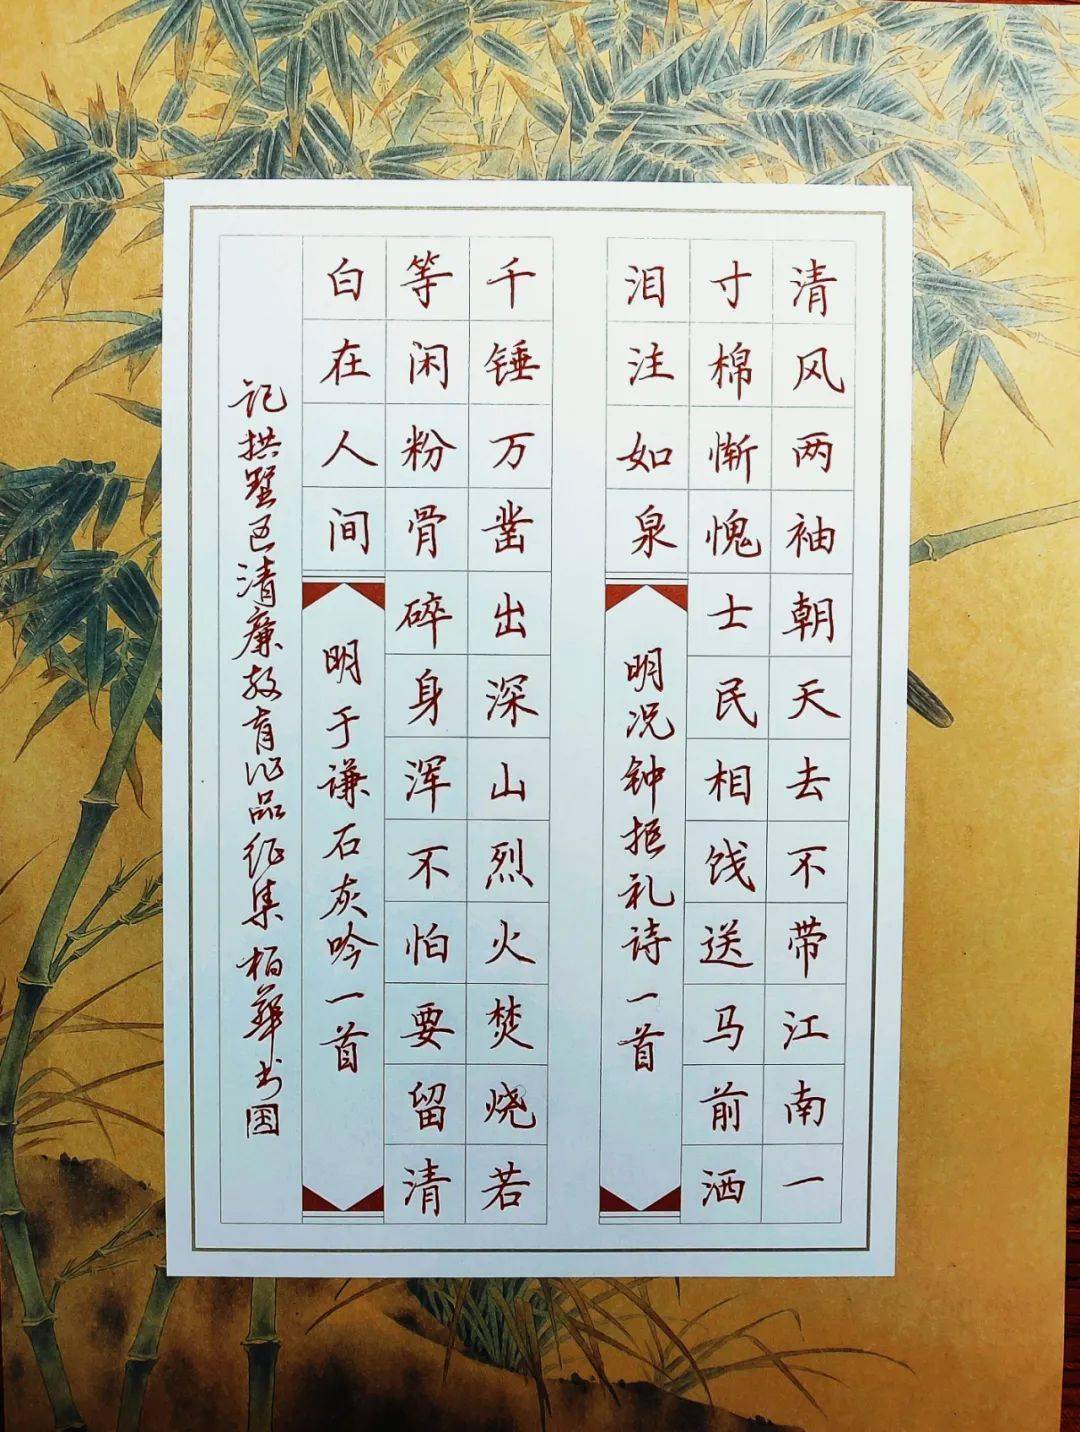 清风两袖朝天去不带江南一
寸棉惭愧士民相饯送马前洒
泪注如泉
明况钟拒礼诗一首
千锤万凿出深山烈火焚烧若
等闲粉骨碎身浑不怕要留清
白在人间
明于谦石灰吟一首
记拱墅区清廉教育作品征集 柏華书